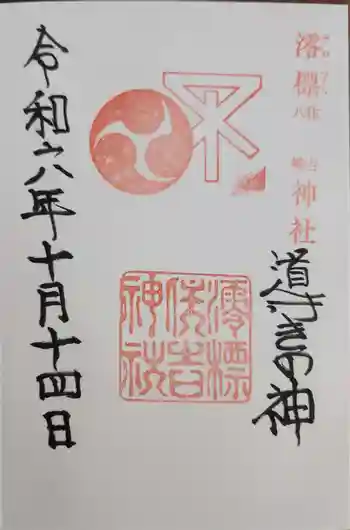 澪標
住吉
神社
道びきの神
澪標
住吉
神社
令和六年十月十四日